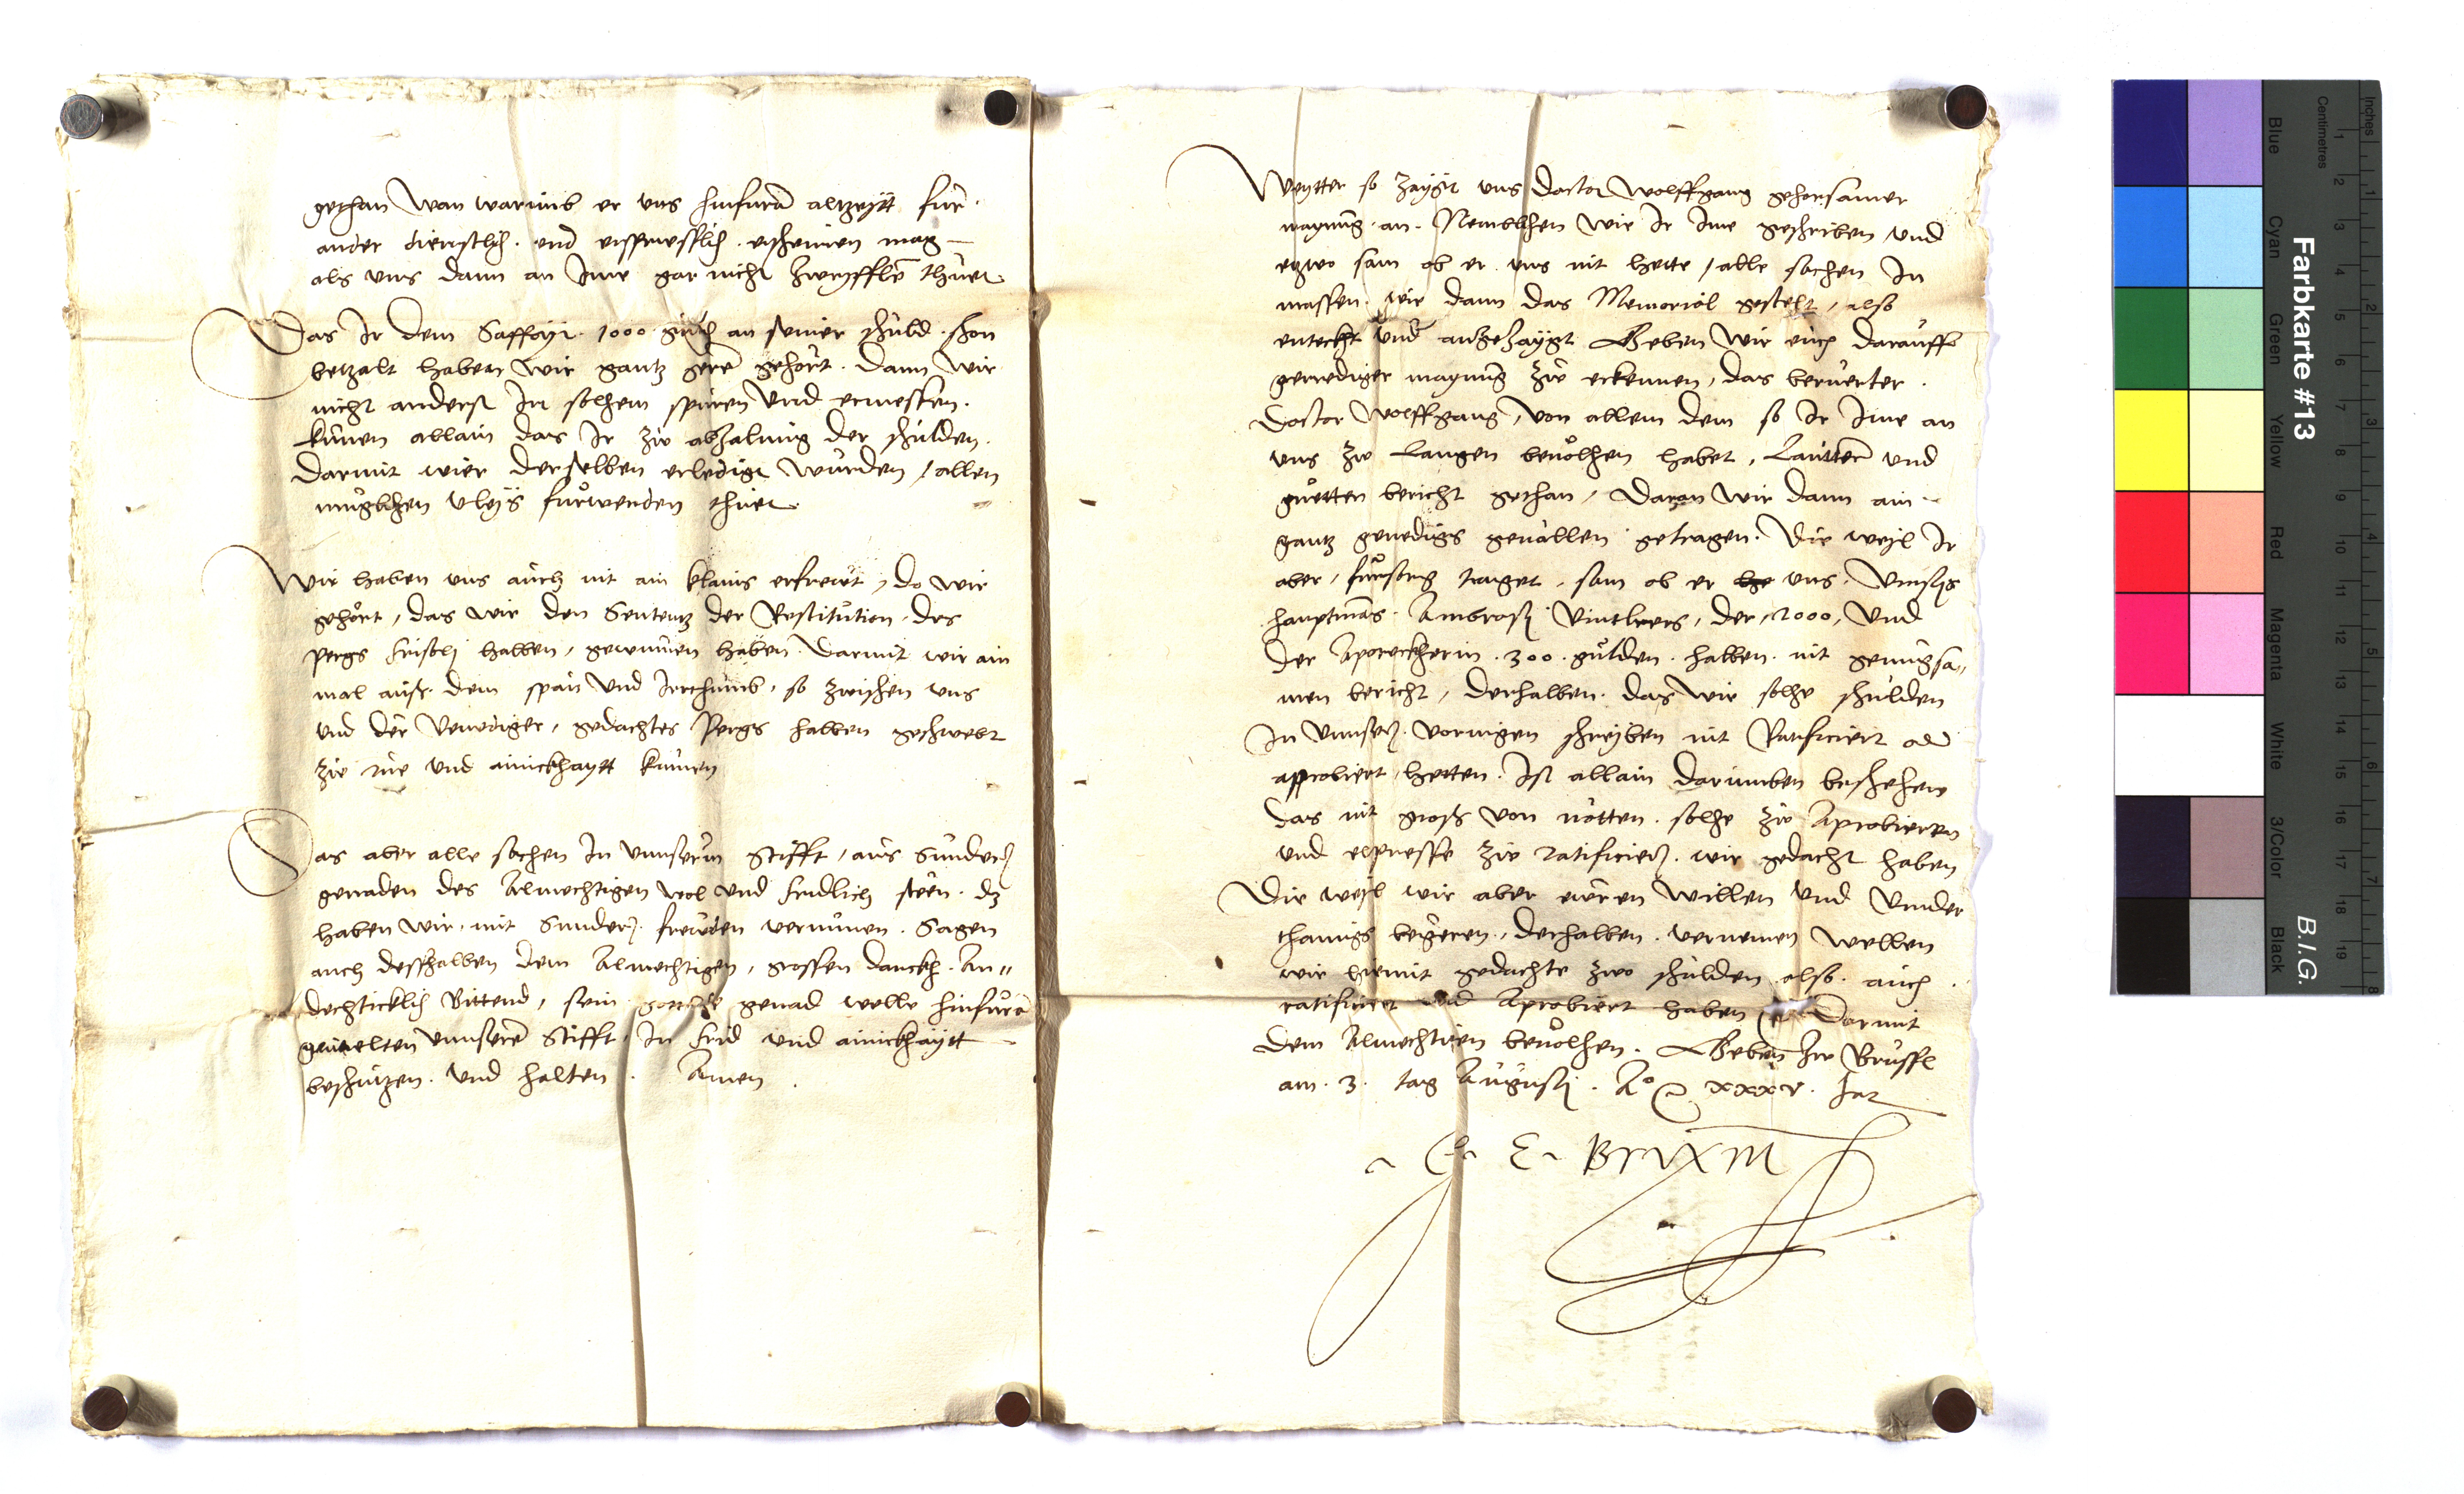 gethan Wan warumb er uns hinfuran altzeytt fur
ander dienstlich. und ersprieslich. erscheinen mag
als uns dann an Ime gar nicht zweyfflen thuet.
Das Ir dem Saffoyr. 1000 gulden an seiner schuld. schon
betzalt haben Wir gantz gern gehört. Dann Wir
nicht anderst In solhem spüren Und ermessen.
künen allain das Ir zw abzalung der schulden.
darmit wier derselben erledigt würden, allen
muglichen vleys fürwenden thuet.
Wir haben uns auch nit ain klains erfrewt, do wir
gehört, das wir den Sententz der Restitution. des
Pergs Frisolj halben, gewunnen haben. Darmit wir ain
mal auss. dem span Und Irrthumb, so zwischen uns
und der Venediger, gedachtes Pergs halben geschwebt
zw rue und ainickhaytt kumen
Das aber alle sachen In unnserm Stifft, aus Sundern
genaden des Almechtigen wol und fridlich steen. dz
haben Wir, mit Sundern. frewden vernumen. Sagen
auch desshalben dem Almechtigen, grossen danckh. An"
dechticklich Bittend, sein gottliche genad welle hinfuran
gemelten unnseren Stifft, In frid und ainickhaytt
beschutzen. und halten. Amen.
Weytter so zaygt uns Doctor Wolffgang gehorsamer
maynung. an. Nemblichen Wie Ir Ime geschriben und
etzwo sam ob er uns nit hette, alle sachen In
massen. wie dann das Memorial gestelt, also
entteckt und angezaygt Geben Wir euch darauff
genediger maynung zw erkennen, das beruerter.
Doctor Wolffgang, von allem dem so Ir Ime an
uns zw Langen bevolhen habet, Lauttern und
guetten bericht gethan, Daran Wir dann ain
gantz genedigs gevallen getragen. Die weyl Ir
aber, fürsorg traget, sam ob er uns, Unnsers
hauptmans. Ambrosj Vintlrers, der, 2000, Und
der Apoteckherin. 300. gulden. halben. nit genugsa"
men bericht, derhalben. das Wir solhe schulden
In unnsern. vorigen schreyben nit Ratificiert oder
aprobiert, hetten. Ist allain darumben beschehen
das nit gross von nötten. solhe zw Aprobieren
und expresse zw ratificiern. wir gedacht haben
Die weyl wir aber ewren Willen und Under
thanigs begeren, derhalben. vernemen Wellen
wir hiemit gedachte zwo schulden. also. auch
ratificiert und Aprobiert haben Darmit
dem Almechtigen bevolhen. Geben zw Brussl
am. 3. tag Augustj. Ao xxxv. Jar
G. E. Brixin
Farbkarte #13
B.I.G.
Inches
Centimetres
Blue
Cyan
Green
Yellow
Red
Magenta
White
3/Color
Black